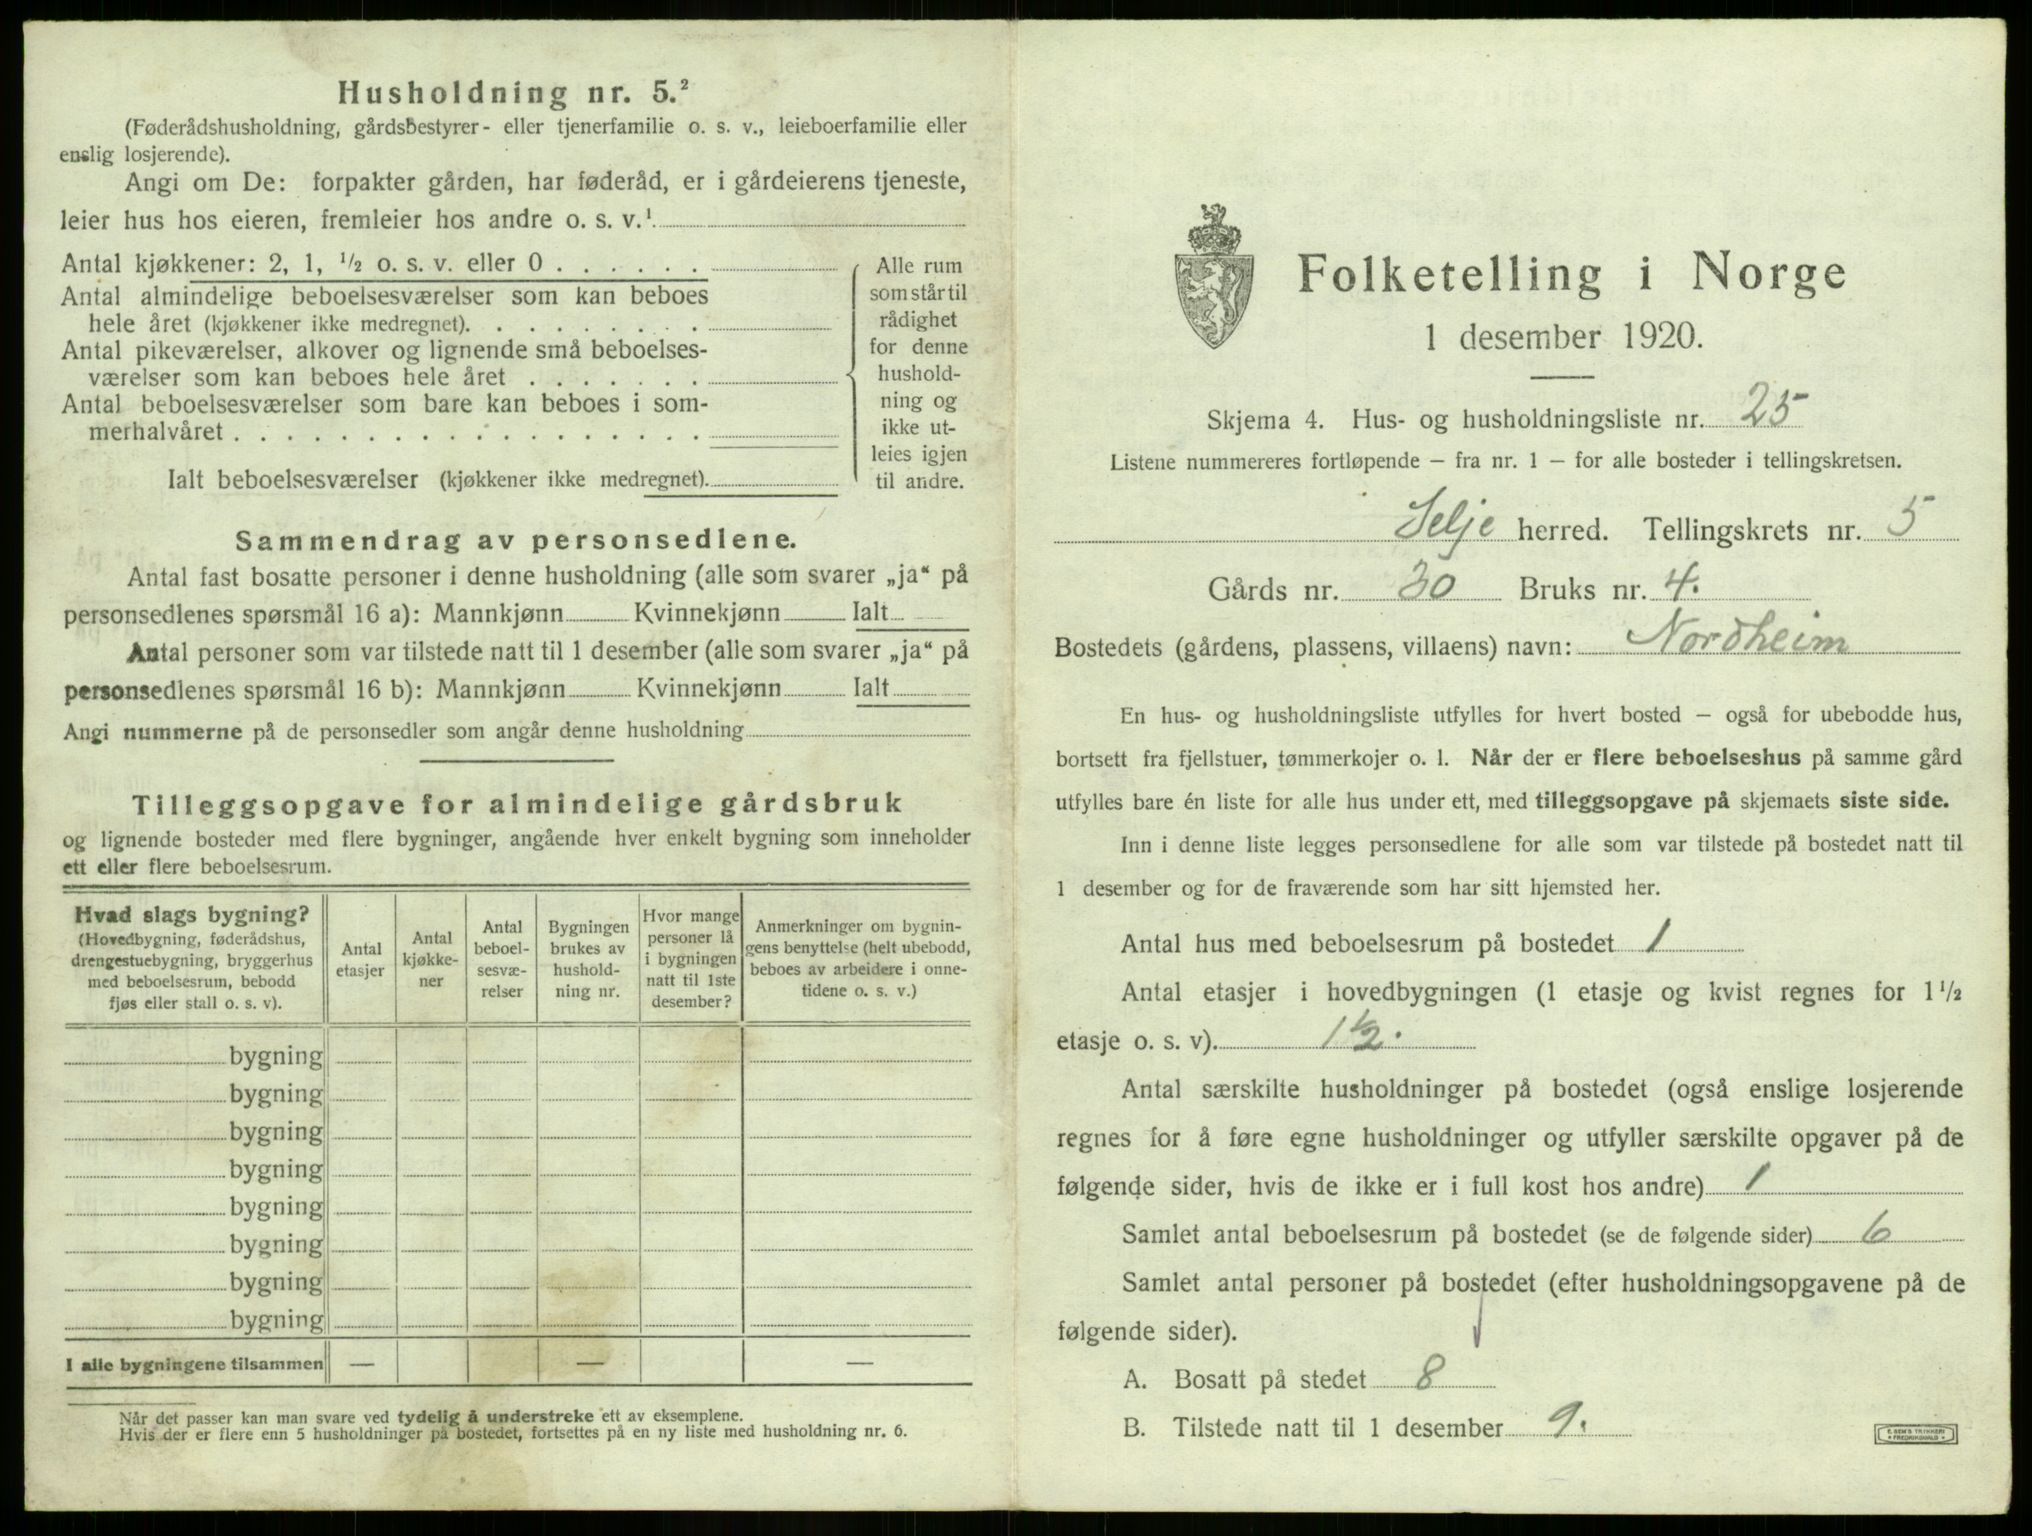 Husholdning nr. 5.²
(Føderådshusholdning, gårdsbestyrer- eller tjenerfamilie o. s. v., leieboerfamilie eller
enslig losjerende).
Angi om De: forpakter gården, har føderåd, er i gårdeierens tjeneste,
leier hus hos eieren, fremleier hos andre o. s. v.¹
Antal kjøkkener: 2, 1, ½ o. s. v. eller 0 . . . . . .
Antal almindelige beboelsesværelser som kan beboes
hele året (kjøkkener ikke medregnet). . . . . . . . .
Antal pikeværelser, alkover og lignende små beboelses-
værelser som kan beboes hele året . . . . . . .
Antal beboelsesværelser som bare kan beboes i som-
merhalvåret . . . . . . . . . . . . . . . . . .
Ialt beboelsesværelser (kjøkkener ikke medregnet).
Alle rum
som står til
rådighet
for denne
hushold-
ning og
ikke ut-
leies igjen
til andre.
Sammendrag av personsedlene.
Antal fast bosatte personer i denne husholdning (alle som svarer „ja“ på
personsedlenes spørsmål 16 a): Mannkjønn Kvinnekjønn Ialt
Antal personer som var tilstede natt til 1 desember (alle som svarer „ja“ på
personsedlenes spørsmål 16 b): Mannkjønn Kvinnekjønn Ialt
Angi nummerne på de personsedler som angår denne husholdning
Tilleggsopgave for almindelige gårdsbruk
og lignende bosteder med flere bygninger, angående hver enkelt bygning som inneholder
ett eller flere beboelsesrum.
Hvad slags bygning?
(Hovedbygning, føderådshus,
drengestuebygning, bryggerhus
med beboelsesrum, bebodd
fjøs eller stall o. s. v).
Antal
etasjer
Antal
kjøkke-
ner
Antal
beboel-
sesvæ-
relser
Bygningen
brukes av
hushold-
ning nr.
Hvor mange
personer lå
i bygningen
natt til 1ste
desember?
Anmerkninger om bygnin-
gens benyttelse (helt ubebodd,
beboes av arbeidere i onne-
tidene o. s. v.)
bygning
bygning
bygning
bygning
bygning
bygning
bygning
bygning
I alle bygningene tilsammen — — —
Når det passer kan man svare ved tydelig å understreke ett av eksemplene.
Hvis der er flere enn 5 husholdninger på bostedet, fortsettes på en ny liste med husholdning nr. 6.
Folketelling i Norge
1 desember 1920.
Skjema 4. Hus- og husholdningsliste nr. 25
Listene nummereres fortløpende – fra nr. 1 – for alle bosteder i tellingskretsen.
Selje herred. Tellingskrets nr. 5
Gårds nr. 30 Bruks nr. 4.
Bostedets (gårdens, plassens, villaens) navn: Nordheim
En hus- og husholdningsliste utfylles for hvert bosted – også for ubebodde hus,
bortsett fra fjellstuer, tømmerkojer o. l. Når der er flere beboelseshus på samme gård
utfylles bare én liste for alle hus under ett, med tilleggsopgave på skjemaets siste side.
Inn i denne liste legges personsedlene for alle som var tilstede på bostedet natt til
1 desember og for de fraværende som har sitt hjemsted her.
Antal hus med beboelsesrum på bostedet 1
Antal etasjer i hovedbygningen (1 etasje og kvist regnes for 1 ½
etasje o. s. v). 1½.
Antal særskilte husholdninger på bostedet (også enslige losjerende
regnes for å føre egne husholdninger og utfyller særskilte opgaver på de
følgende sider, hvis de ikke er i full kost hos andre) 1
Samlet antal beboelsesrum på bostedet (se de følgende sider) 6
Samlet antal personer på bostedet (efter husholdningsopgavene på de
følgende sider).
A. Bosatt på stedet 8
B. Tilstede natt til 1 desember 9.
E. SEM'S TRYKKERI
FREDRIKSHALD